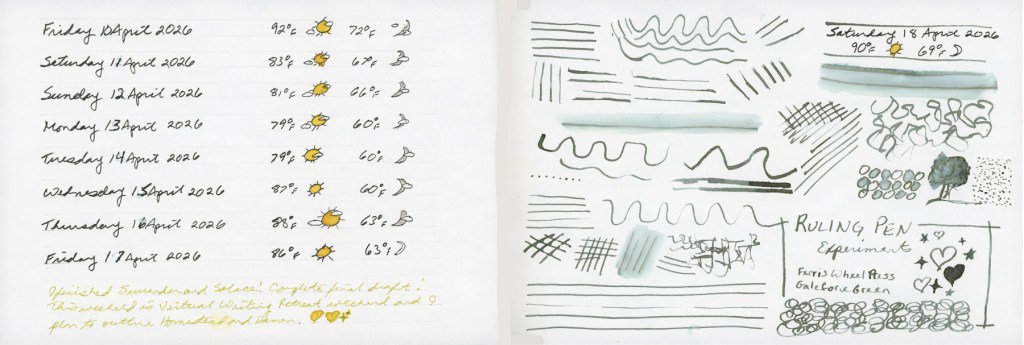 Friday 10 April 2026 92°F 72°F
Saturday 11 April 2026 83°F 67°F
Sunday 12 April 2026 81°F 66°F
Monday 13 April 2026 79°F 60°F
Tuesday 14 April 2026 79°F 60°F
Wednesday 15 April 2026 87°F 60°F
Thursday 16 April 2026 88°F 63°F
Friday 17 April 2026 86°F 63°F
I finished Surrender and Solace! Complete final draft!
This weekend is Virtual Writing Retreat weekend and I
plan to outline and
Saturday 18 April 2026
90°F 69°F
RULING PEN
Experiment
Ferris Wheel Press
Gale Force Green